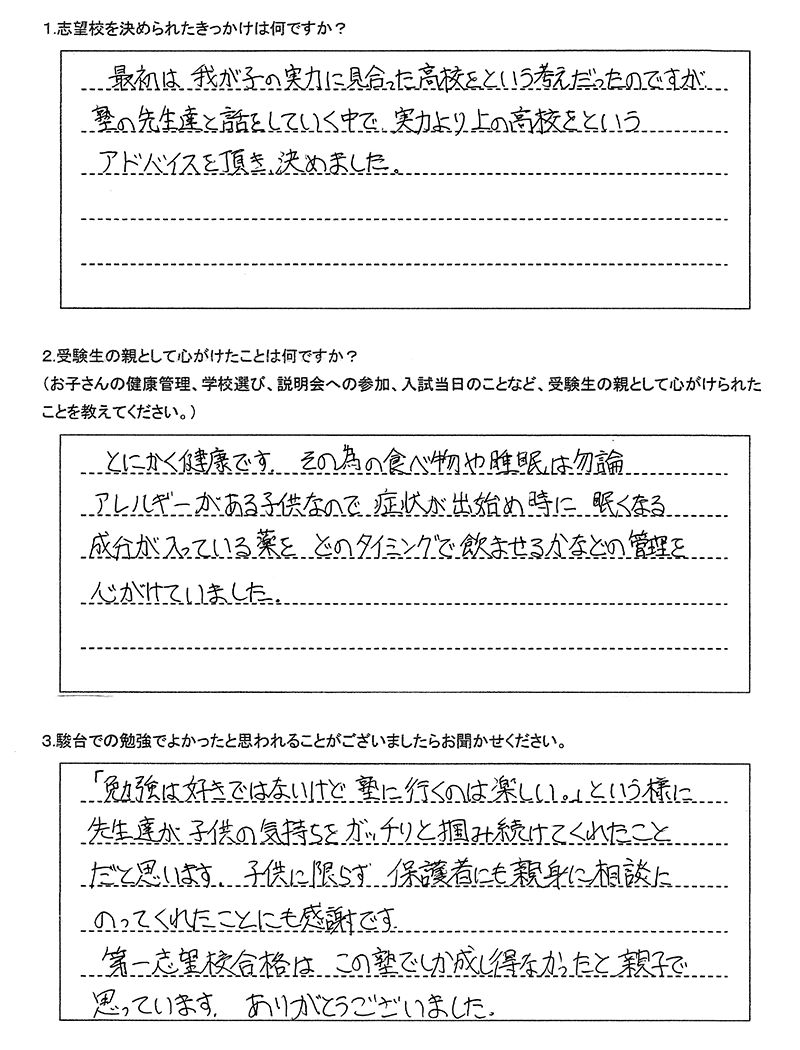 1.志望校を決められたきっかけは何ですか？
最初は 我が子の実力に見合った高校をという考えだったのですが
塾の先生達と話をしていく中で 実力より上の高校をという
アドバイスを頂き、決めました。
2.受験生の親として心がけたことは何ですか？
（お子さんの健康管理、学校選び、説明会への参加、入試当日のことなど、受験生の親として心がけられた
ことを教えてください。）
とにかく健康です。 その為の食べ物や睡眠は勿論
アレルギーがある子供なので 症状が出始め時に 眠くなる
成分が入っている薬を どのタイミングで飲ませるかなどの管理を
心がけていました。
3.駿台での勉強でよかったと思われることがございましたらお聞かせください。
「勉強は好きではないけど 塾に行くのは楽しい。」という様に
先生達が 子供の気持ちをガッチリと掴み続けてくれたこと
だと思います。 子供に限らず 保護者にも親身に相談に
のってくれたことにも感謝です。
第一志望校合格は この塾でしか成し得なかったと 親子で
思っています。 ありがとうございました。